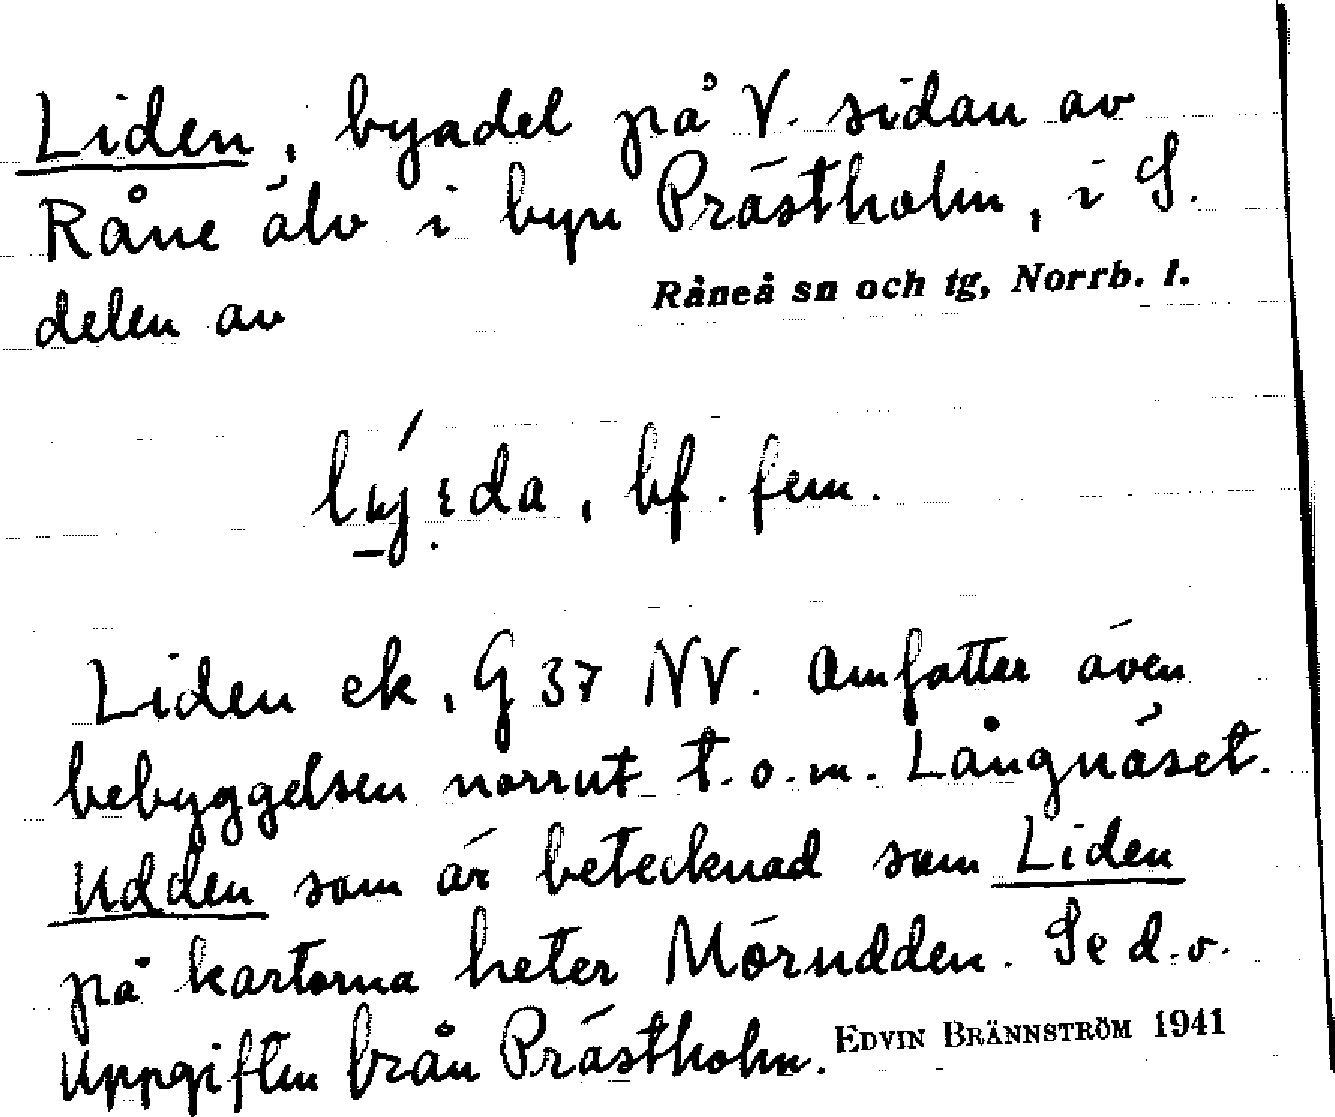 Liden, byadel på V. sidan av
Råne älv i byn Prästholm, i S.
delen av Råneå sn och tg, Norrb. l.
bf. fem.
Liden ek. G 37 NV. Omfattar även
bebyggelsen norrut t.o.m. Långnäset.
Udden som är betecknad som Liden
på kartorna heter Mörudden. Se d.o.
Uppgiften från Prästholm. EDVIN BRÄNNSTRÖM 1941